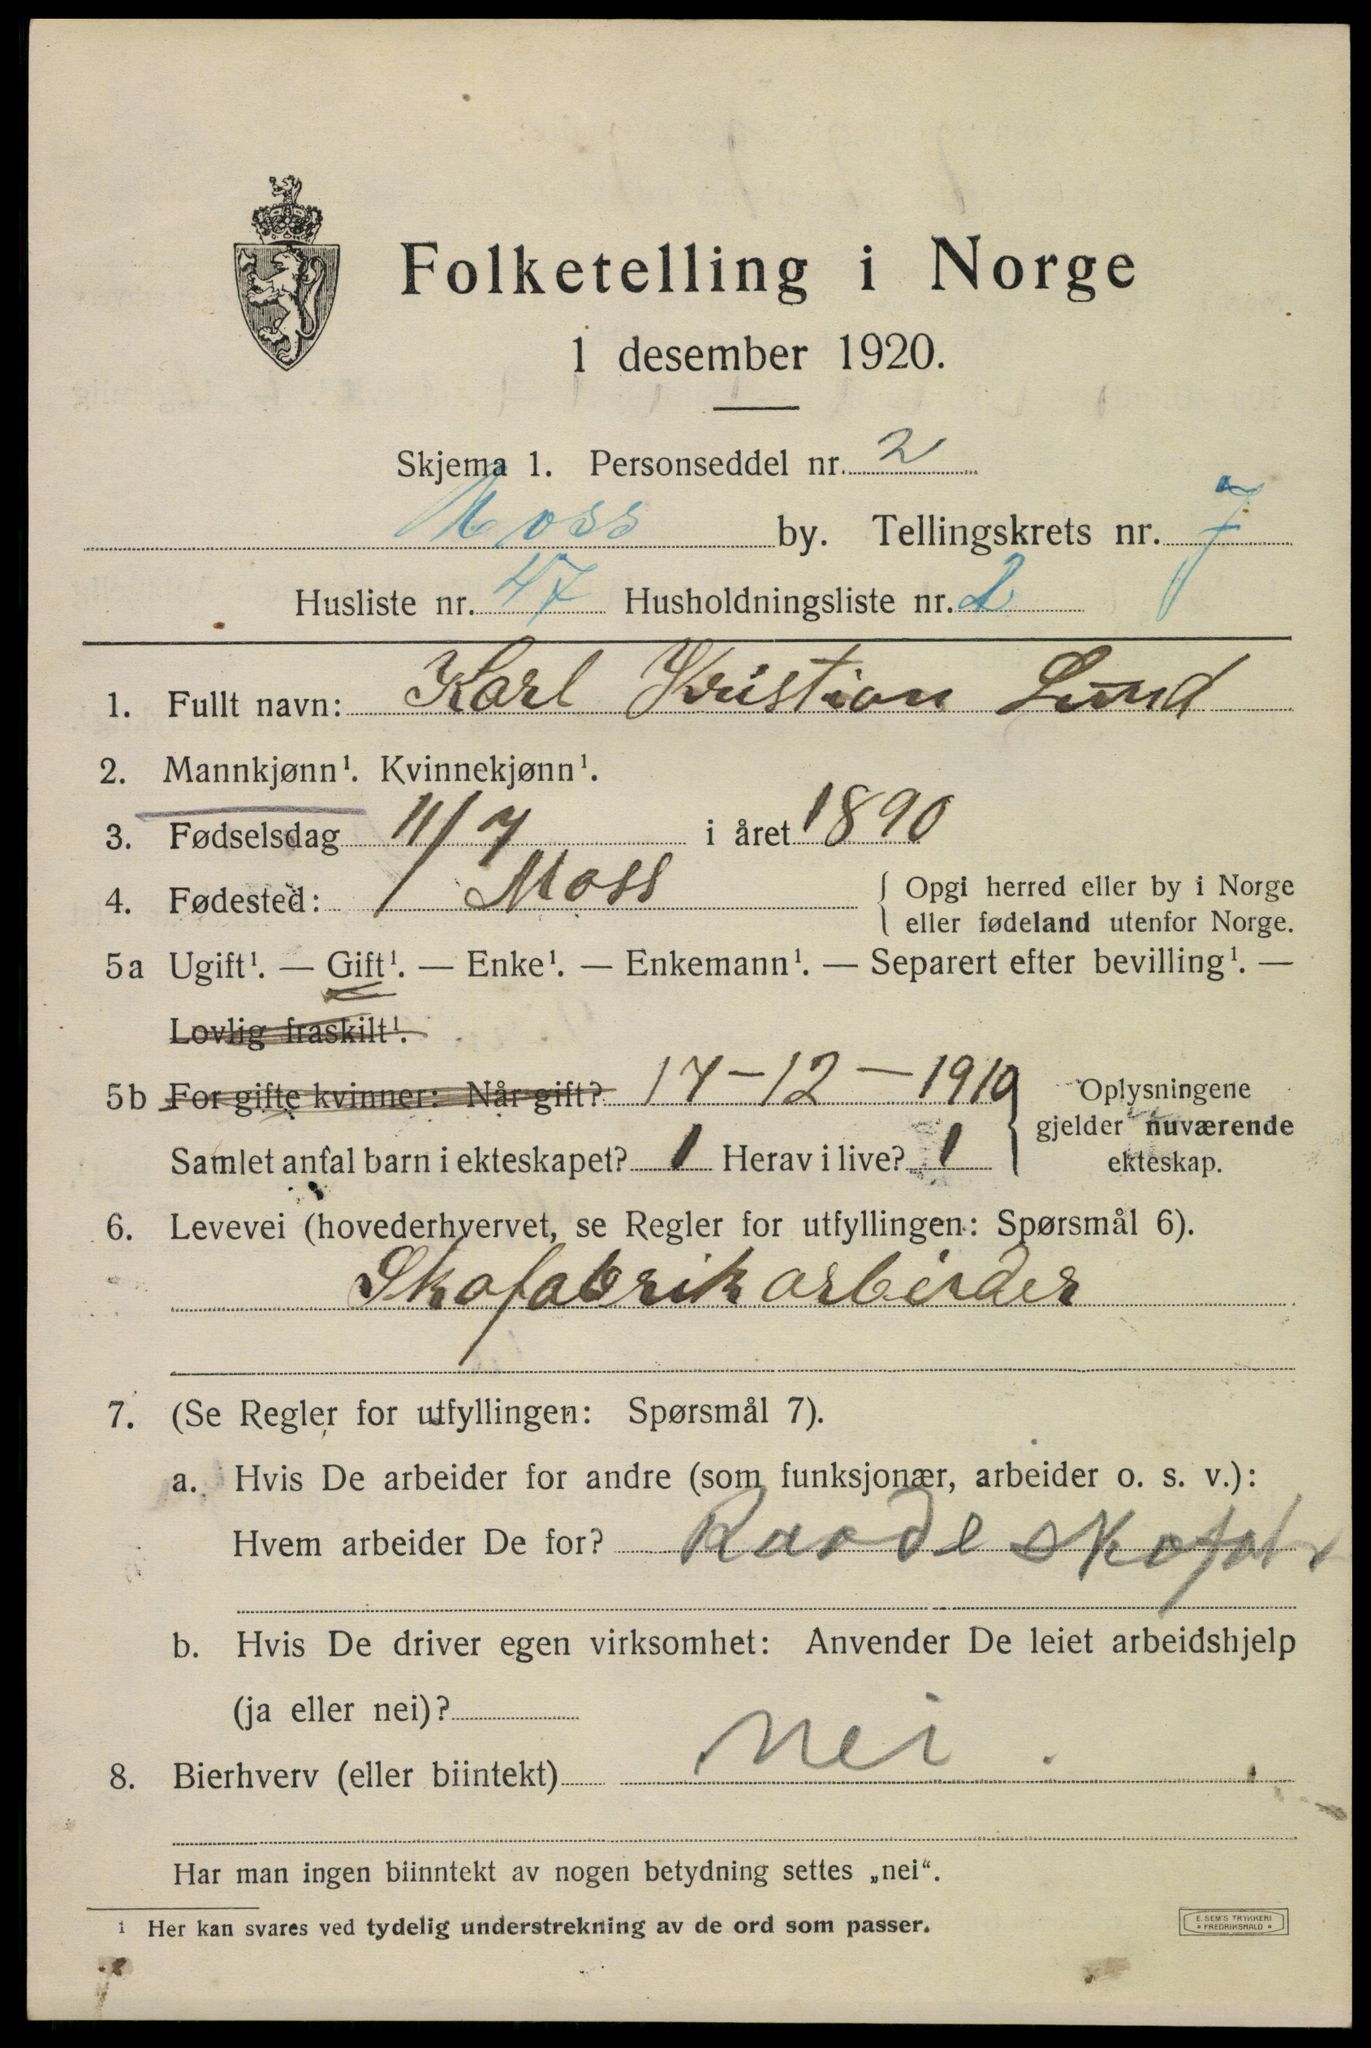 Folketelling i Norge
1 desember 1920.
Skjema 1. Personseddel nr. 2
Moss by. Tellingskrets nr. 7
Husliste nr. 47 Husholdningsliste nr. 2
1. Fullt navn: Karl Kristian Lund
2. Mannkjønn¹. Kvinnekjønn¹.
3. Fødselsdag 11/7 i året 1890
4. Fødested: Moss { Opgi herred eller by i Norge
eller fødeland utenfor Norge.
5a Ugift¹. — Gift¹. — Enke¹. — Enkemann¹. — Separert efter bevilling¹. —
Lovlig fraskilt¹.
5b For gifte kvinner: Når gift? 17-12-1910 } Oplysningene
gjelder nuværende
Samlet antal barn i ekteskapet? 1 Herav i live? 1 ekteskap.
6. Levevei (hovederhvervet, se Regler for utfyllingen: Spørsmål 6).
Skofabrikarbeider
7. (Se Regler for utfyllingen: Spørsmål 7).
a. Hvis De arbeider for andre (som funksjonær, arbeider o. s. v.):
Hvem arbeider De for? Raade skofabr
b. Hvis De driver egen virksomhet: Anvender De leiet arbeidshjelp
(ja eller nei)?
8. Bierhverv (eller biintekt) nei.
Har man ingen biinntekt av nogen betydning settes „nei“.
¹ Her kan svares ved tydelig understrekning av de ord som passer.
E. SEM'S TRYKKERI
* FREDRIKSHALD *